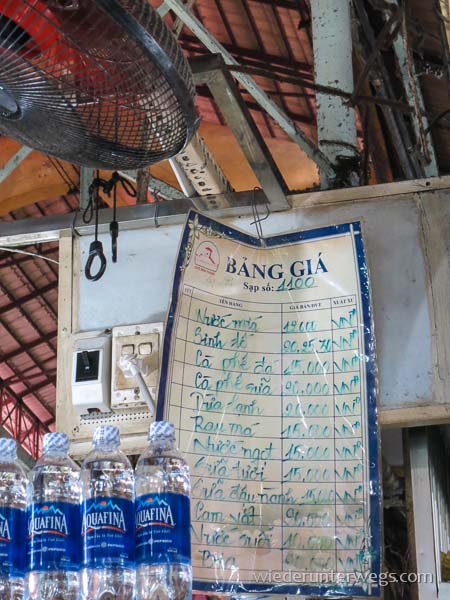 BẢNG GIÁ
Sạp số: 1100
STT TÊN HÀNG GIÁ BÁN/ĐVT XUẤT XỨ
Nước mía VN
Sinh tố 20.25 VN
Cà phê đá 15.000 VN
Cà phê sữa 20.000 VN
Dừa lạnh 20.000 VN
Rau má 10.000 VN
Nước ngọt 15.000 VN
Sữa tươi 15.000 VN
Sữa đậu nành 15.000 VN
Cam vắt 20.000 VN
Nước suối 10.000 VN
AQUAFINA
AQUAFINA
AQUAFINA
PEPSICO
wiederunterwegs.com